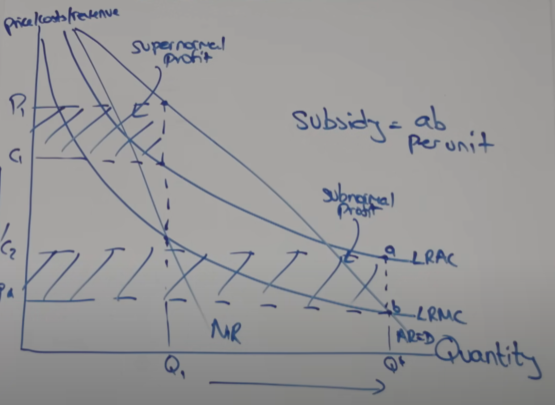 price/costs/revenue
supernormal
profit
P1
Subsidy = ab
per unit
C1
subnormal
profit
C2
a
LRAC
b
LRMC
MR
AR=D
Quantity
Q1